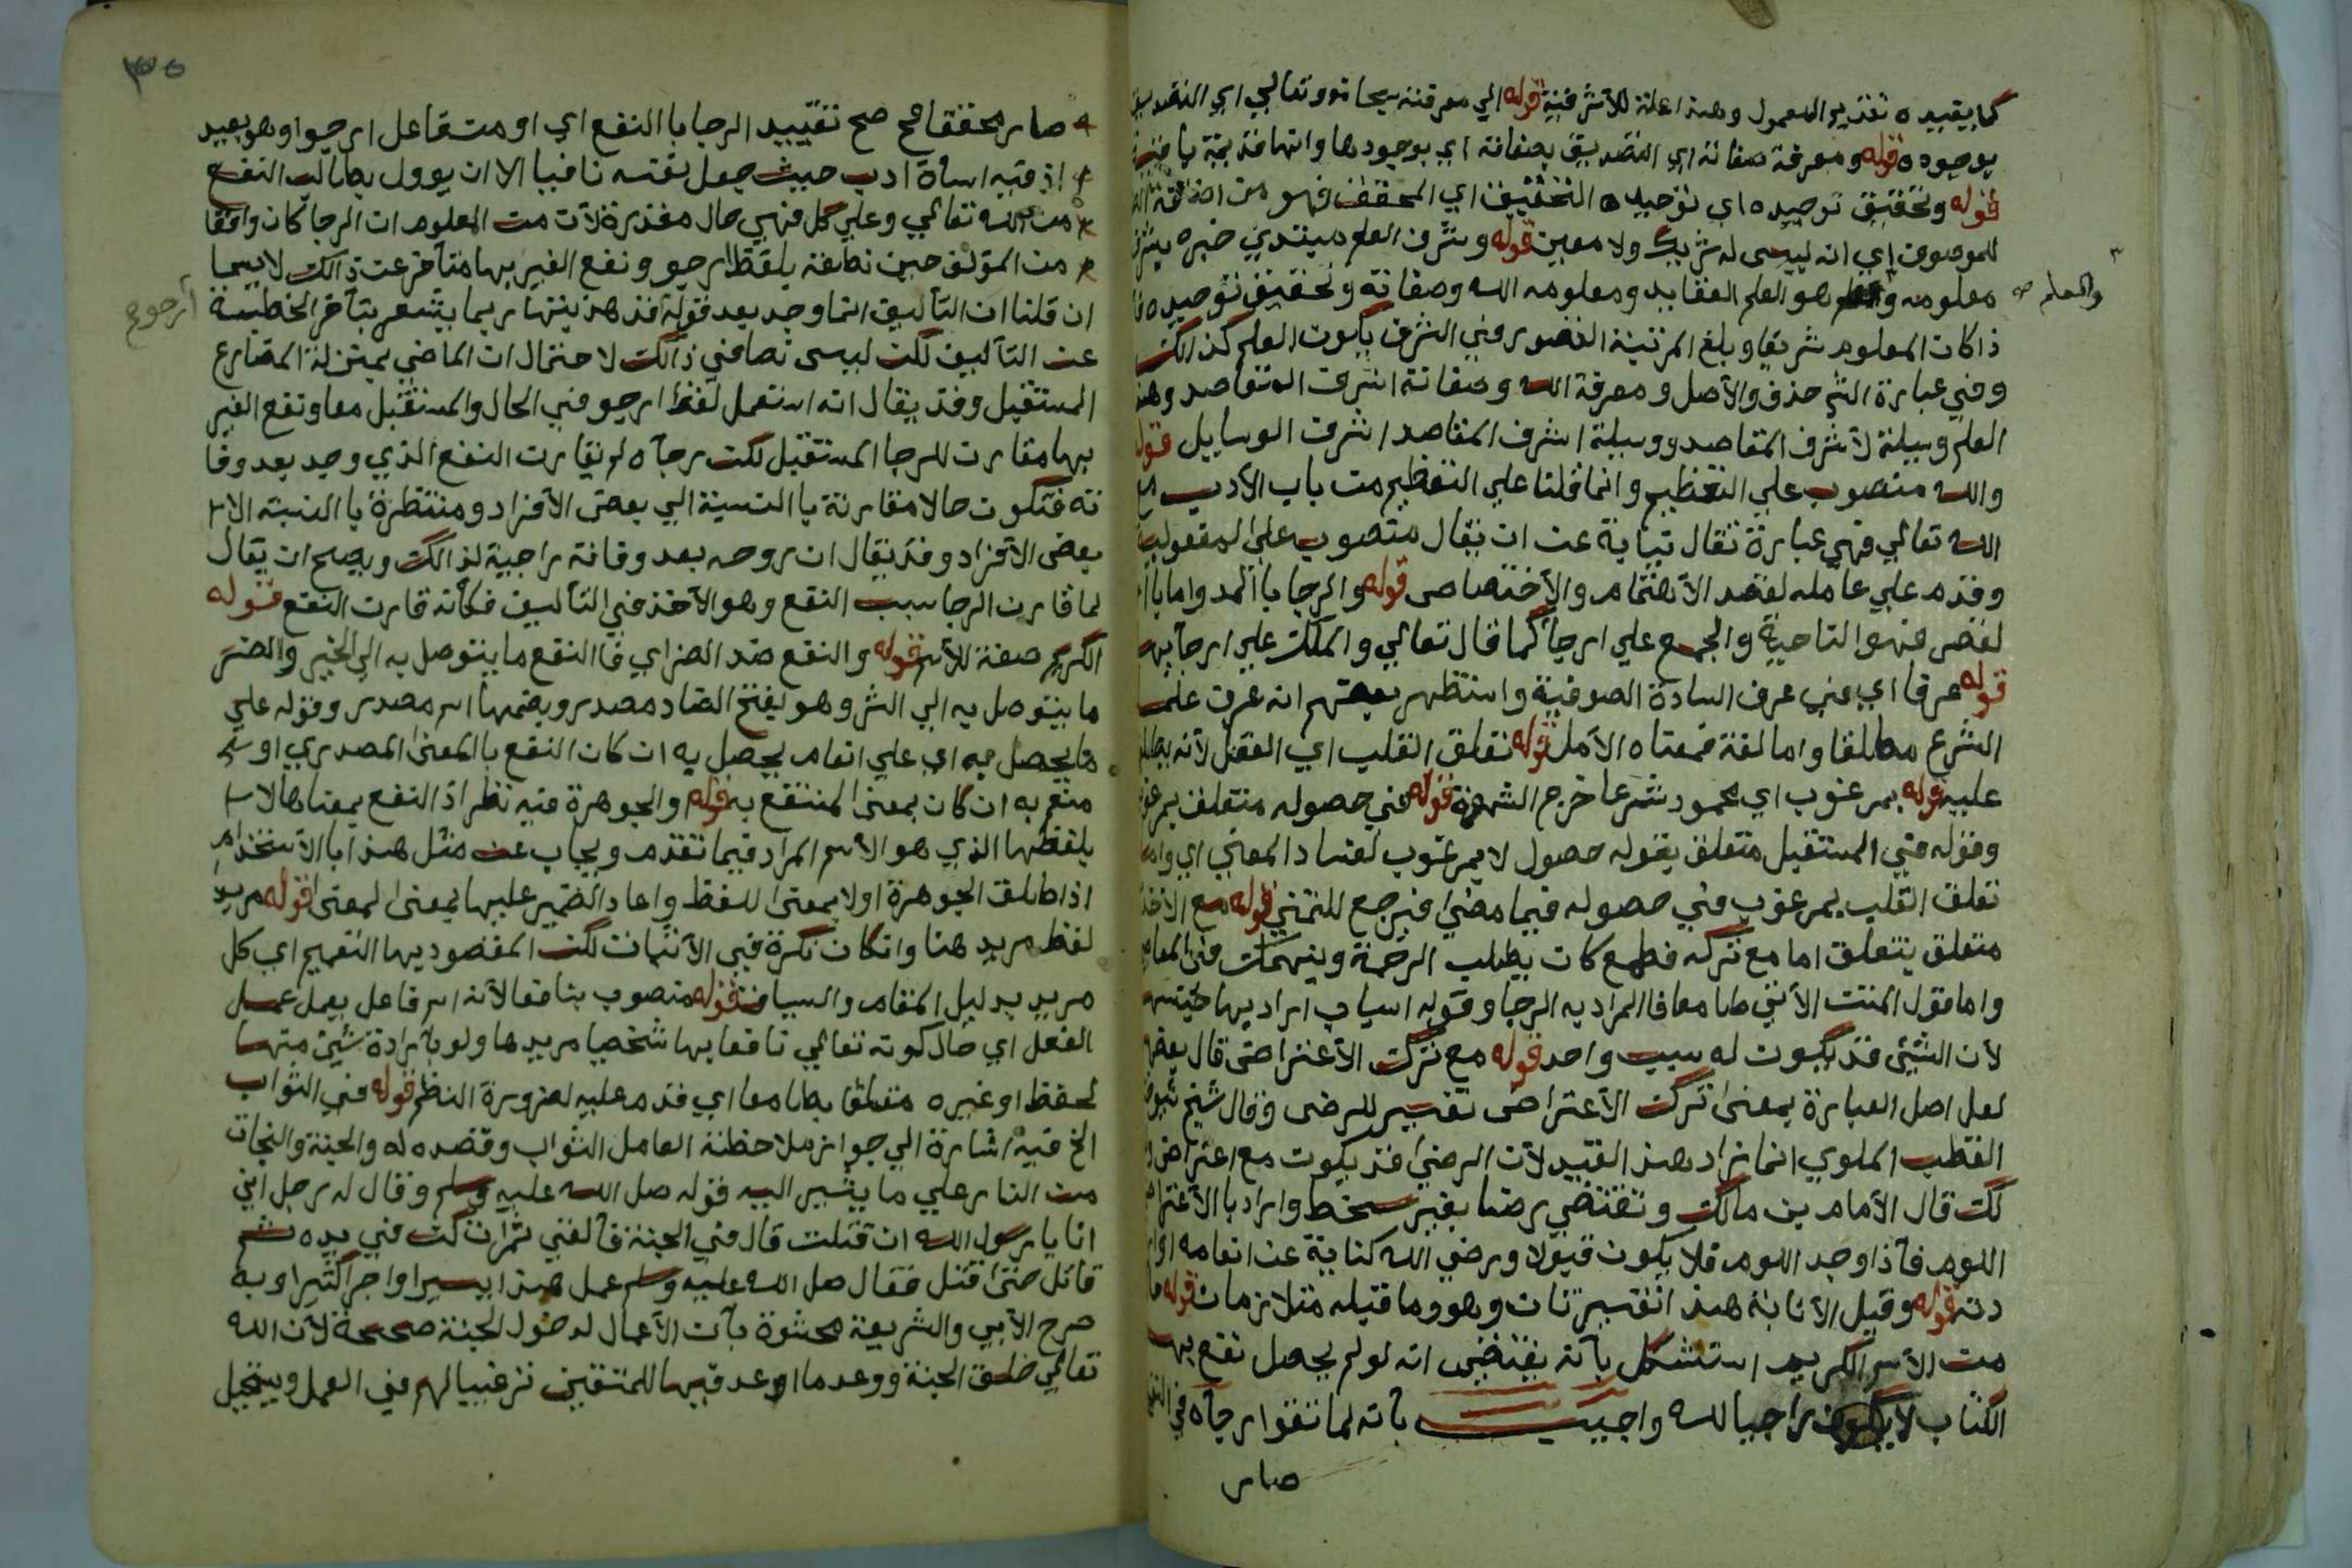 كما يفيده تقديم المعمول وهذه اعلة للأشرفية قوله الي معرفته سبحانه وتعالي اي التصديق
بوجوده قوله ومعرفة صفاته اي التصديق بصفاته اي بوجودها وانها قديمة باقية
قوله وتحقيق توحيده اي توحيده التحقيق اي المحقق فهو من اضافة
للموصوف اي انه ليس له شريك ولا معين قوله وشرف العلم مبتدي خبره بشرف
معلومه وهو العلم العقايد ومعلومه الله وصفاته وتحقيق توحيده
والعلم صح
ذا كان المعلوم شريفا وبلغ المرتبة القصوي في الشرف يكون العلم كذالك
وفي عبارة الش حذف والاصل ومعرفة الله وصفاته اشرف المقاصد وهذا
العلم وسيلة لأشرف المقاصد ووسيلة اشرف المقاصد اشرف الوسايل قوله
والله منصوب علي التعظيم وانما قلنا علي التعظيم من باب الأدب مع
الله تعالي فهي عبارة تقال نيابة عن ان يقال منصوب علي المفعولية
وقدم علي عامله لقصد الأهتمام والأختصاص قوله والرجا بالمد واما با
لقصر فهو الناحية والجمع علي ارجا كما قال تعالي والملك علي ارجآيها
قوله عرفا اي في عرف السادة الصوفية واستظهر بعضهم انه عرف علما
الشرع مطلقا واما لغة فمعناه الأمل قوله تعلق القلب اي العقل لأنه يطلق
عليه قوله بمرغوب اي محمود شرعا خرج الشهوة قوله في حصوله متعلق بمرغوب
وقوله في المستقبل متعلق بقوله حصول لا بمرغوب لفساد المعني اي واما
تعلق القلب بمرغوب في حصوله فيما مضي فيرجع للتمني قوله مع الأخذ
متعلق بتعلق اما مع تركه فطمع كان يطلب الرحمة وينهمك في المعا
واما قول المتن الأتي طامعا فالمراد به الرجا وقوله اسباب اراد بها جنسها
لأن الشئ قد يكون له سبب واحد قوله مع ترك الأعتراض قال بعضهم
لعل اصل العبارة بمعني ترك الأعتراض تفسير للرضي وقال شيخ شيوخنا
القطب الملوي انما زاد هذ القيد لأن الرضي قد يكون مع اعتراض
لكن قال الأمام بن مالك وتقتضي رضا بغير سخط واراد بالأعتراض
اللوم فأذا وجد اللوم فلا يكون قبولا ورضي الله كناية عن انعامه او
دته قوله وقيل الأنابة هذ انفسير ثان وهو وما قبله متلازمان قوله
من الأسم الكريم استشكل بأنه يقتضي انه لو لم يحصل نفع بها
الكتاب لايكون راجيا لله واجيب بأنه لما تقوا رجآه في
صار
صار محققا صح تقييد الرجا باالنفع اي او من فاعل ارجوا وهو بعيد
اذ فيه اسأة ادب حيث جعل نفسه نافيا الا ان يوول بطالب النفع
من الله تعالي وعلي كل فهي حال مقدرة لأن من المعلوم ان الرجا كان واقعا
من المؤلف حين نطقه بلفظ ارجو ونفع الغير بها متأخر عن ذالك لا سيما
ارجوح
ان قلنا ان التأليف انما وجد بعد قوله قد هذبتها ربما يشعر بتأخر الخطبة
عن التأليف لكن ليس نصا في ذالك لاحتمال ان الماضي بمنزلة المضارع
المستقبل وقد يقال انه استعمل لفظ ارجو في الحال والمستقبل معا ونفع الغير
بها مقارن للرجا المستقبل لكن رجآه لم يقارن النفع الذي وجد بعد وفا
ته فتكون حالا مقارنة باالنسبة الي بعض الأفراد ومنتظرة باالنسبة الا
بعض الأفراد وقد يقال ان روحه بعد وفاته راجية لذالك ويصح ان يقال
لما قارن الرجا سبب النفع وهو الأخذ في التأليف فكأنه قارن النفع قوله
الكريم صفة للأسم قوله والنفع ضد الضر اي فاالنفع ما يتوصل به الي الخير والضر
ما يتوصل به الي الشر وهو بفتح الضاد مصدر وبضمها اسم مصدر وقوله علي
ما يحصل به اي علي انعام يحصل به ان كان النفع باالمعني المصدري او شئ
منعم به ان كان بمعني المنتفع به قوله والجوهرة فيه نظر اذ النفع بمعناها لا
بلفظها الذي هو الأسم المراد فيما تقدم ويجاب عن مثل هذا باالأستخدام
اذ اطلق الجوهرة اولا بمعني اللفظ واعاد الضمير عليها بمعني المعني قوله مريد
لفظ مريد هنا وانكان نكرة في الأثبات لكن المقصود بها التعميم اي كل
مريد بدليل المقام والسياق قوله منصوب بنافعا لأنه اسم فاعل يعمل عمل
الفعل اي حال كونه تعالي نافعا بها شخصا مريدها ولو بأرادة شئ منها
لحفظ او غيره متعلقا بطامعا اي قدم عليه لضرورة النظم قوله في الثواب
الخ فيه اشارة الي جواز ملاحظة العامل الثواب وقصده له والجنة والنجات
من النار علي ما يشير اليه قوله صل الله عليه وسلم وقال له رجل اين
انا يا رسول الله ان قتلت قال في الجنة فألقي ثمرات كن في يده ثم
قاتل حتي قتل فقال صل الله عليه وسلم عمل هذا يسيرا واجر كثيرا وبه
صرح الأبي والشريعة محشوة بأن الأعمال لدخول الجنة صحيحة لأن الله
تعالي خلق الجنة ووعد ما اوعد فيها للمتقين ترغيبا لهم في العمل ويستحيل